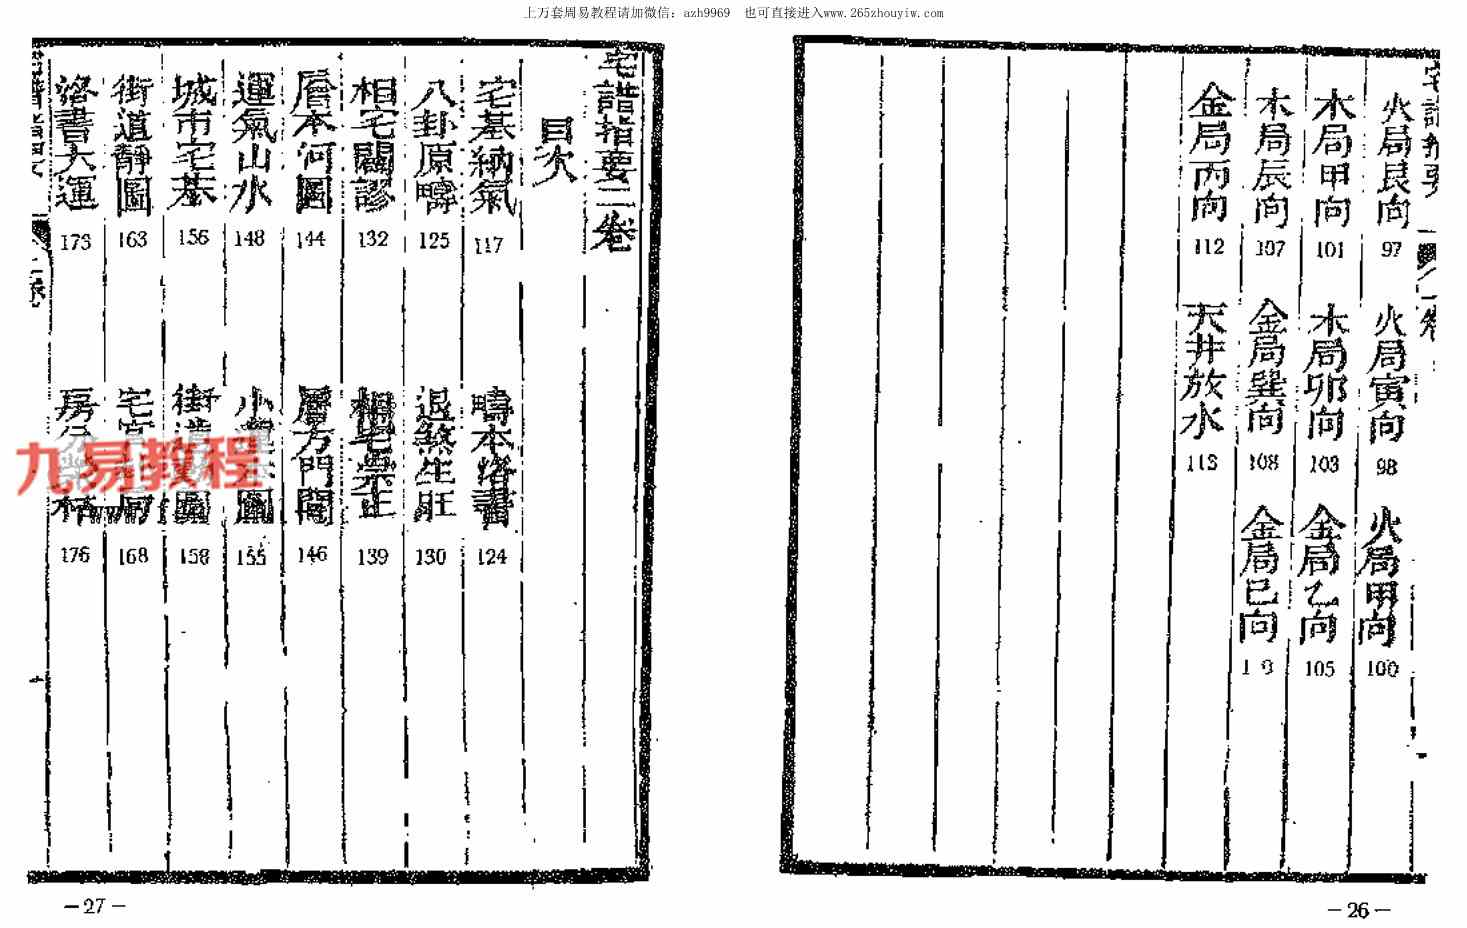 上万套周易教程请加微信：azh9969　也可直接进入www.265zhouyiw.com
火局艮向 97 火局寅向 98 火局甲向 100
木局甲向 101 木局卯向 103 金局乙向 105
木局辰向 107 金局巽向 108 金局巳向
金局丙向 112 天井放水 113
—26—
宅譜指要二卷
目次
宅基納氣 117 疇本洛書 124
八卦原疇 125 退煞生旺 130
相宅闢謬 132 相宅崇正 139
層本河圖 144 層方門間 146
運氣山水 148 小 圖 155
城市宅基 156 街道 圖 158
街道靜圖 163 宅 168
洛書大運 173 房 176
—27—
九易教程